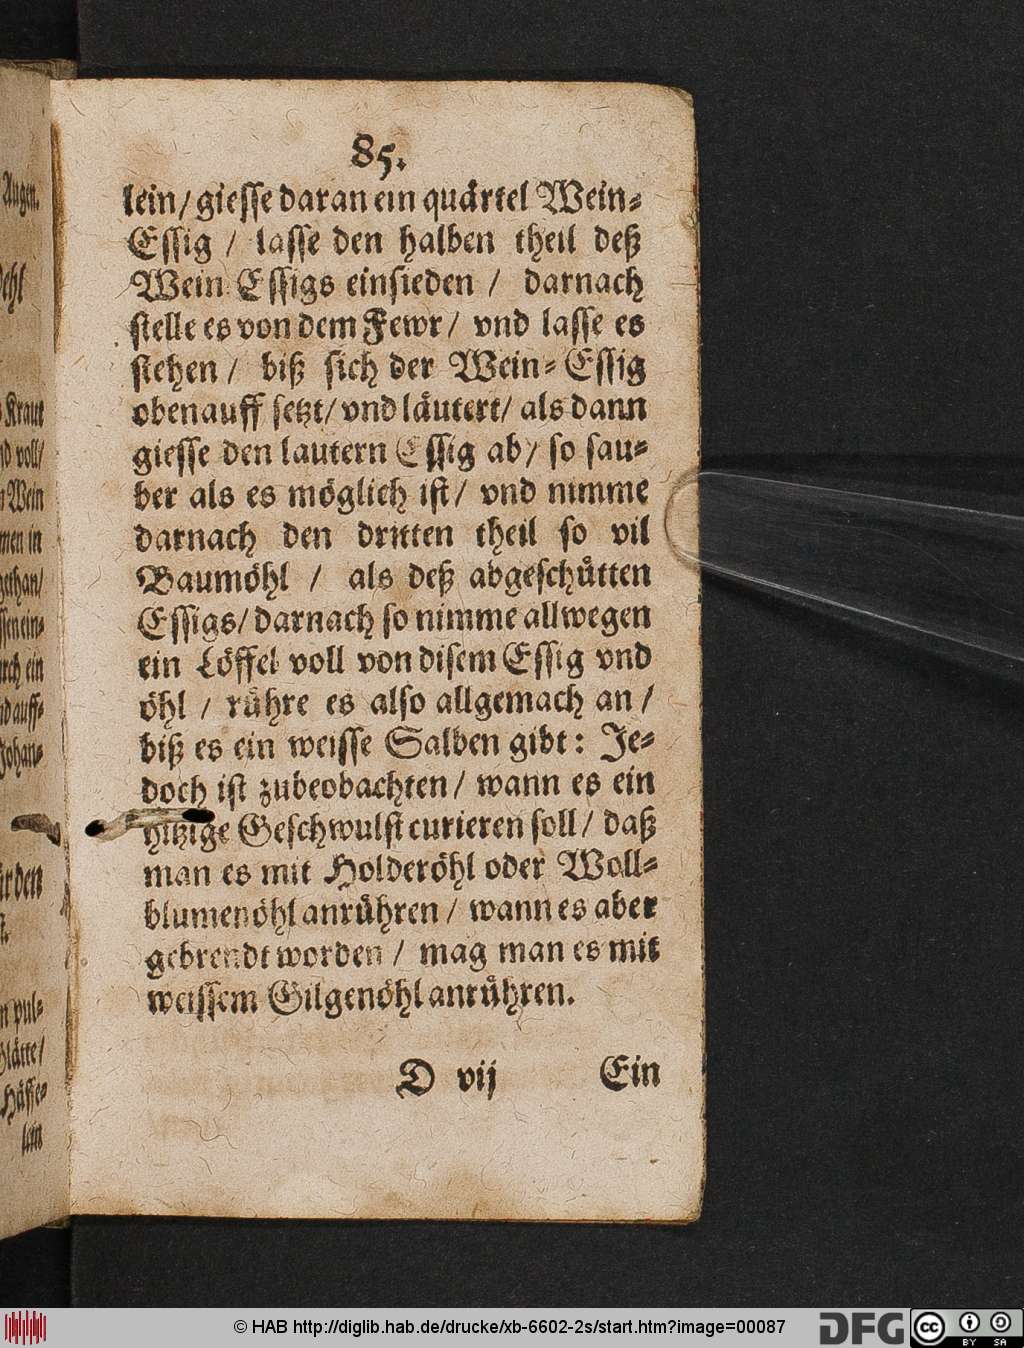 85.
lein/ giesse daran ein quärtel Wein⸗
Essig / lasse den halben theil deß
Wein Essigs einsieden / darnach
stelle es von dem Fewr/ vnd lasse es
stehen / biß sich der Wein⸗Essig
obenauff setzt/ vnd läutert/ als dann
giesse den lautern Essig ab/ so sau⸗
ber als es möglich ist/ vnd nimme
darnach den dritten theil so vil
Baumöhl / als deß abgeschütten
Essigs/ darnach so nimme allwegen
ein Löffel voll von disem Essig vnd
öhl / rühre es also allgemach an /
biß es ein weisse Salben gibt: Je⸗
doch ist zubeobachten/ wann es ein
hitzige Geschwulst curieren soll/ daß
man es mit Holderöhl oder Woll⸗
blumenöhl anrühren / wann es aber
gebrendt worden / mag man es mit
weissem Gilgenöhl anrühren.
D vij Ein
Augen.
Kraut
voll/
Wein
men in
gethan/
ein
auff⸗
Johan⸗
pul⸗
Hässe⸗
lein
© HAB http://diglib.hab.de/drucke/xb-6602-2s/start.htm?image=00087
DFG
cc
BY SA